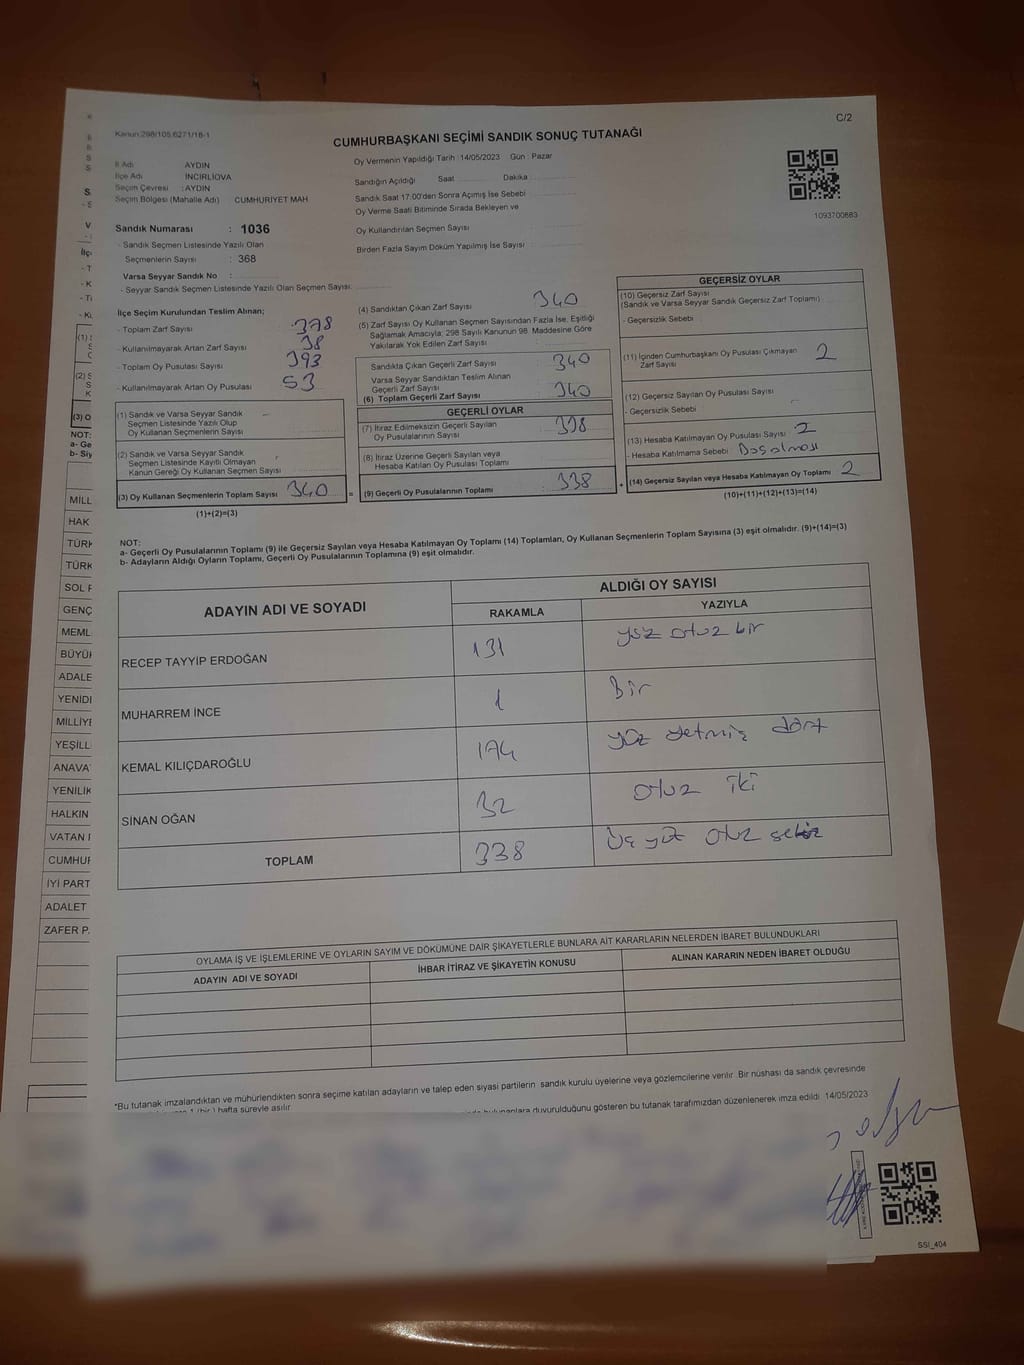 C/2
Kanun:298/105,6271/18-1
CUMHURBAŞKANI SEÇİMİ SANDIK SONUÇ TUTANAĞI
İl Adı AYDIN
İlçe Adı İNCİRLİOVA
Seçim Çevresi : AYDIN
Seçim Bölgesi (Mahalle Adı) CUMHURİYET MAH
Oy Vermenin Yapıldığı Tarih :14/05/2023 Gün : Pazar
Sandığın Açıldığı Saat Dakika
Sandık Saat 17:00'den Sonra Açmış İse Sebebi
Oy Verme Saati Bitiminde Sırada Bekleyen ve
Oy Kullandırılan Seçmen Sayısı
Birden Fazla Sayım Döküm Yapılmış İse Sayısı
1093700883
Sandık Numarası : 1036
- Sandık Seçmen Listesinde Yazılı Olan
Seçmenlerin Sayısı : 368
Varsa Seyyar Sandık No :
- Seyyar Sandık Seçmen Listesinde Yazılı Olan Seçmen Sayısı:
İlçe Seçim Kurulundan Teslim Alınan;
- Toplam Zarf Sayısı 378
- Kullanılmayarak Artan Zarf Sayısı 38
- Toplam Oy Pusulası Sayısı 393
- Kullanılmayarak Artan Oy Pusulası 53
(1) Sandık ve Varsa Seyyar Sandık
Seçmen Listesinde Yazılı Olup
Oy Kullanan Seçmenlerin Sayısı
(2) Sandık ve Varsa Seyyar Sandık
Seçmen Listesinde Kayıtlı Olmayan
Kanun Gereği Oy Kullanan Seçmen Sayısı
(3) Oy Kullanan Seçmenlerin Toplam Sayısı 340 =
(1)+(2)=(3)
(4) Sandıktan Çıkan Zarf Sayısı 340
(5) Zarf Sayısı Oy Kullanan Seçmen Sayısından Fazla İse, Eşitliği
Sağlamak Amacıyla; 298 Sayılı Kanunun 98. Maddesine Göre
Yakılarak Yok Edilen Zarf Sayısı
Sandıkta Çıkan Geçerli Zarf Sayısı 340
Varsa Seyyar Sandıktan Teslim Alınan
Geçerli Zarf Sayısı
(6) Toplam Geçerli Zarf Sayısı 340
GEÇERLİ OYLAR
(7) İtiraz Edilmeksizin Geçerli Sayılan
Oy Pusulalarının Sayısı 338
(8) İtiraz Üzerine Geçerli Sayılan veya
Hesaba Katılan Oy Pusulası Toplamı
(9) Geçerli Oy Pusulalarının Toplamı 338 +
GEÇERSİZ OYLAR
(10) Geçersiz Zarf Sayısı
(Sandık ve Varsa Seyyar Sandık Geçersiz Zarf Toplamı)
- Geçersizlik Sebebi
(11) İçinden Cumhurbaşkanı Oy Pusulası Çıkmayan
Zarf Sayısı 2
(12) Geçersiz Sayılan Oy Pusulası Sayısı
- Geçersizlik Sebebi
(13) Hesaba Katılmayan Oy Pusulası Sayısı 2
- Hesaba Katılmama Sebebi Boş olması
(14) Geçersiz Sayılan veya Hesaba Katılmayan Oy Toplamı 2
(10)+(11)+(12)+(13)=(14)
NOT:
a- Geçerli Oy Pusulalarının Toplamı (9) ile Geçersiz Sayılan veya Hesaba Katılmayan Oy Toplamı (14) Toplamları, Oy Kullanan Seçmenlerin Toplam Sayısına (3) eşit olmalıdır. (9)+(14)=(3)
b- Adayların Aldığı Oyların Toplamı, Geçerli Oy Pusulalarının Toplamına (9) eşit olmalıdır.
ADAYIN ADI VE SOYADI ALDIĞI OY SAYISI
RAKAMLA YAZIYLA
RECEP TAYYİP ERDOĞAN 131 yüz otuz bir
MUHARREM İNCE 1 Bir
KEMAL KILIÇDAROĞLU 174 yüz yetmiş dört
SİNAN OĞAN 32 otuz iki
TOPLAM 338 üç yüz otuz sekiz
OYLAMA İŞ VE İŞLEMLERİNE VE OYLARIN SAYIM VE DÖKÜMÜNE DAİR ŞİKAYETLERLE BUNLARA AİT KARARLARIN NELERDEN İBARET BULUNDUKLARI
ADAYIN ADI VE SOYADI İHBAR İTİRAZ VE ŞİKAYETİN KONUSU ALINAN KARARIN NEDEN İBARET OLDUĞU
*Bu tutanak imzalandıktan ve mühürlendikten sonra seçime katılan adayların ve talep eden siyasi partilerin sandık kurulu üyelerine veya gözlemcilerine verilir. Bir nüshası da sandık çevresinde
1 (bir) hafta süreyle asılır.
bulunanlara duyurulduğunu gösteren bu tutanak tarafımızdan düzenlenerek imza edildi. 14/05/2023
SSI_404
MİLL
HAK
TÜRK
TÜRK
SOL P
GENÇ
MEML
BÜYÜK
ADALE
YENİDE
MİLLİYE
YEŞİLL
ANAVA
YENİLİK
HALKIN
VATAN
CUMHUR
İYİ PART
ADALET
ZAFER P.